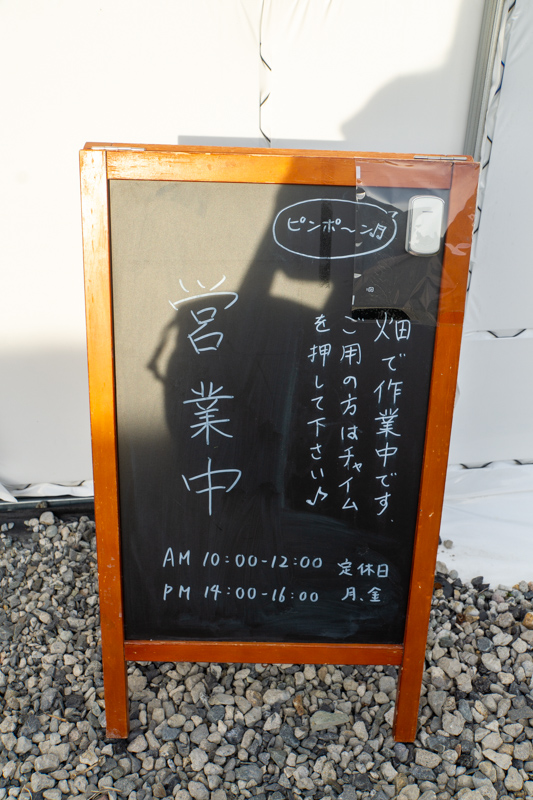 ピンポ〜ン♫
畑で作業中です.
ご用の方はチャイム
を押して下さい♪
営業中
AM 10:00-12:00
PM 14:00-16:00
定休日
月、金